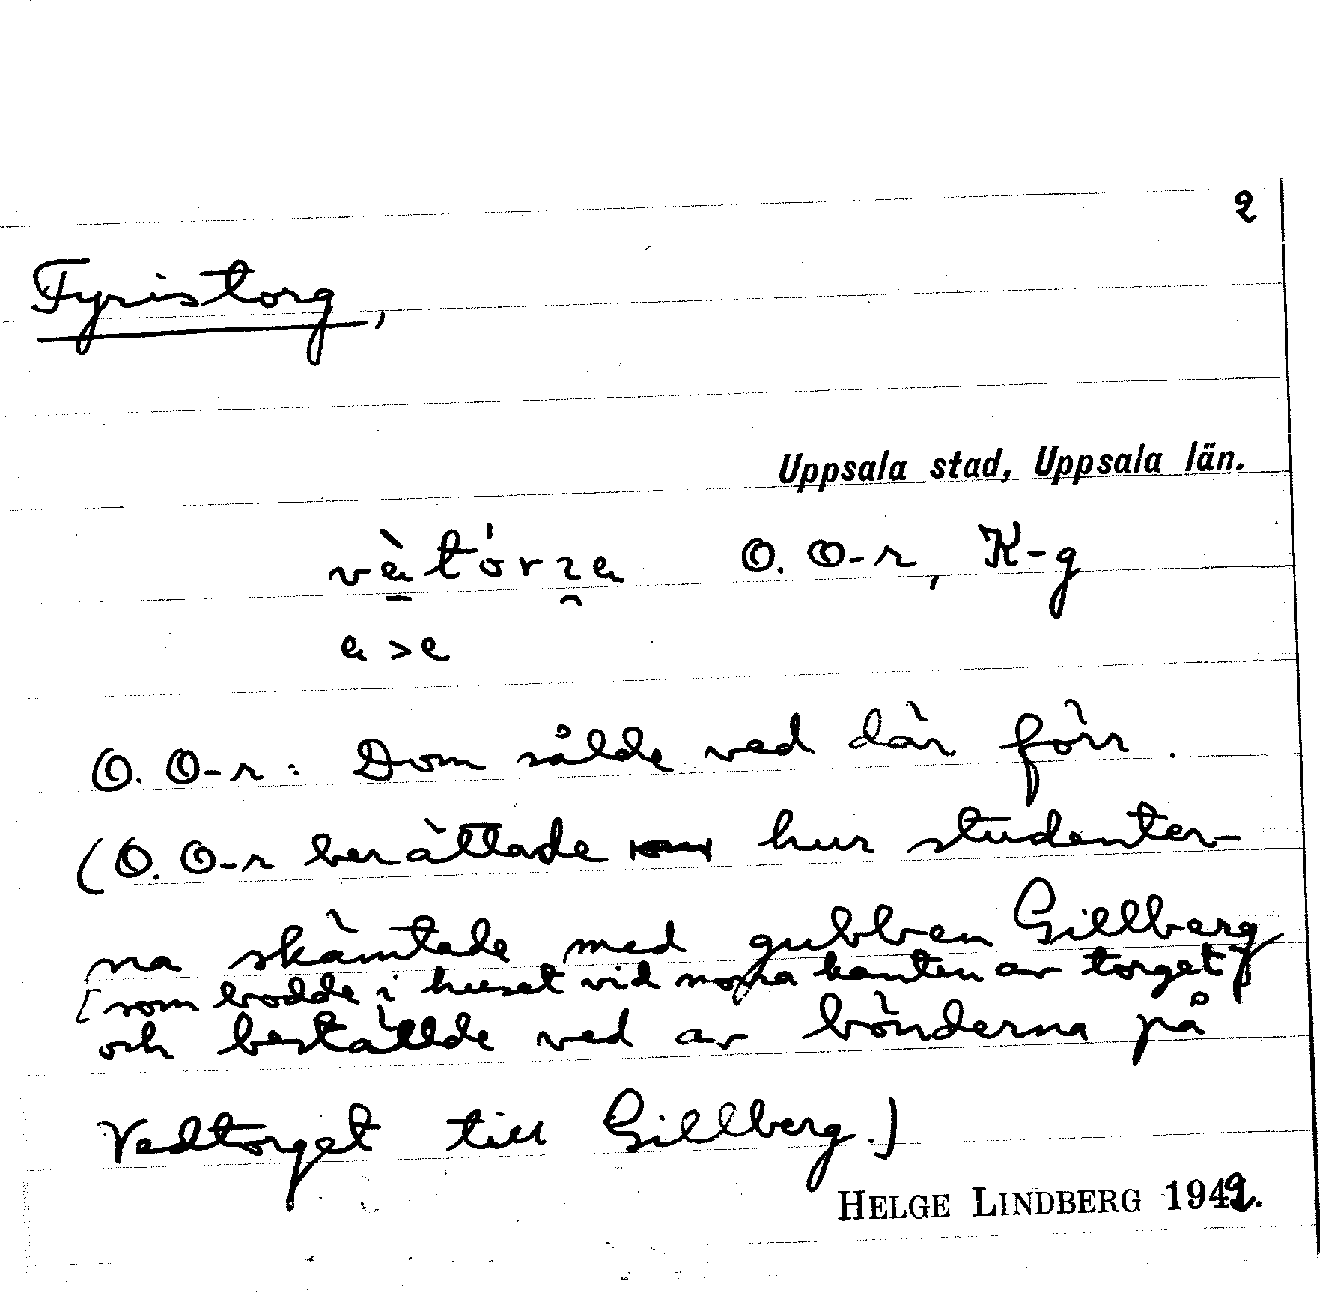 2
Fyristorg,
Uppsala stad, Uppsala län.
O. O-r, K-g
a > e
O. O-r: Dom sålde ved där förr.
(O. O-r berättade hur studenter-
na skämtade med gubben Gillberg
[som bodde i huset vid norra kanten av torget]
och beställde ved av bönderna på
Vedtorget till Gillberg.)
HELGE LINDBERG 1942.